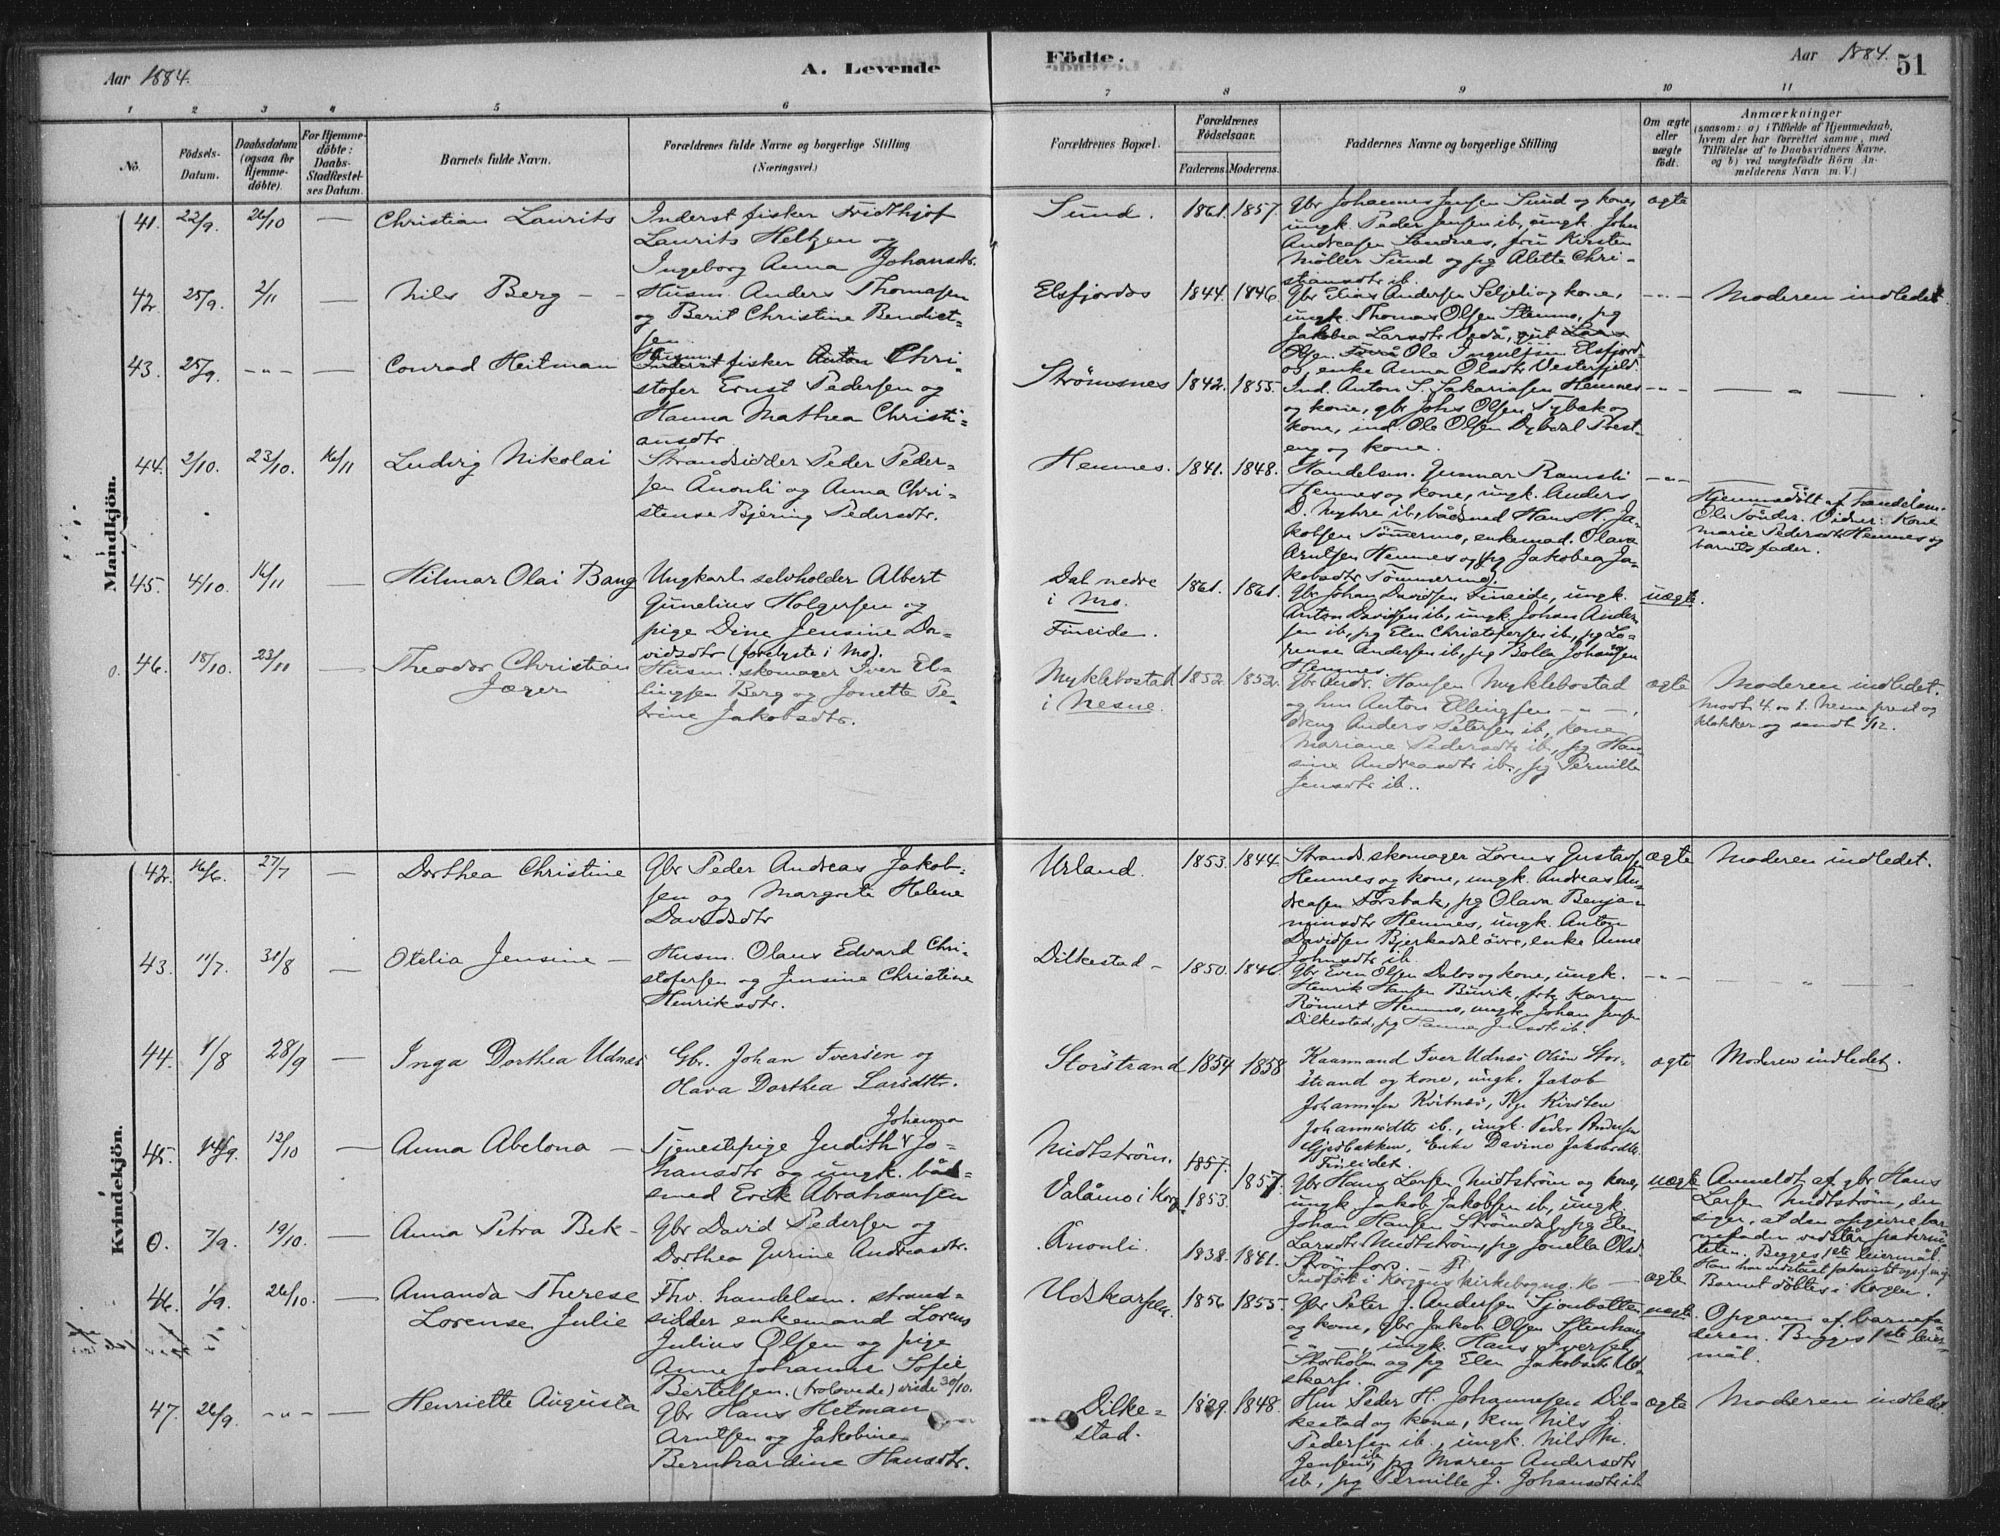 Aar 1884.
A. Levende
Födte.
Aar 1884.
51
1 2 3 4 5 6 7 8 9 10 11
No.
Födsels-
Datum.
Daabsdatum
(ogsaa for
Hjemme-
döbte).
For Hjemme-
döbte:
Daabs-
Stadfæstel-
ses Datum.
Barnets fulde Navn.
Forældrenes fulde Navne og borgerlige Stilling
(Næringsvei.)
Forældrenes Bopæl.
Forældrenes
Födselsaar.
Faderens. Moderens.
Faddernes Navne og borgerlige Stilling
Om ægte
eller
uægte
födt.
Anmærkninger
(saasom: a) i Tilfælde af Hjemmedaab,
hvem der har forrettet samme, med
Tilföielse af to Daabsvidners Navne,
og b) ved uægtefödte Börn An-
melderens Navn m. V.)
Mandkjön.
41. 22/9 26/10 — Christian Laurits
Inderst fisker Fridthjof
Laurits Heltzen og
Ingeborg Anna Johansdtr.
Sund. 1861. 1857.
Gbr Johannes Jensen Sund og kone,
ungk. Peder Jensen ib, ungk. John
Andreasen Sandnes, fru Kirsten
Møller Sund og pg Alette Chri-
stiansdtr ib.
ægte
42 25/9. 2/11 — Nils Berg - -
Husm. Anders Thomasen
og Berit Christine Bendict-
sen
Elsfjordos 1844. 1846.
Gbr Elias Andersen Seljeli og kone,
ungk. Thomas Olsen Stemno, pg
Jakobea Larsdtr
Olsen Ole Ingulfsen Elsfjord-
os, enke Anna Olsdtr Vesterfjeld.
-"- Moderen indledet.
43. 25/9. -"- — Conrad Heitman
Husm. fisker Chri-
stofer Ernst Pedersen og
Hanna Mathea Christi-
ansdtr
Strömsnes 1842. 1855.
Ind. Anton S. Sakariasen Hemnes
og kone, gbr Johs Olsen Tybæk og
kone, ind. Ole Olsen Dybdal Prest-
eng og kone.
-"- — " —
44. 2/10. 23/10. 16/11 Ludvig Nikolai
Strandsidder Peder Peder-
sen Ånonli og Anna Chri-
stense Bjering Pedersdtr.
Hemnes. 1841. 1848.
Handelsm. Gunnar Ramsli
Hemnes og kone, ungk. Anders
D. Myhre ib, bådsmed Hans H. Ja-
kobsen Tömmermo, enkemad. Olava
Arntsen Hemnes og pg Jakobea Ja-
kobsdtr Tömmermo.
-"-
Hjemmedöbt af handelsm.
Ole Tönder. Vidner: Kone
Marie Pedersdtr Hemnes og
barnets fader.
45. 4/10. 16/11 — Hilmar Olai Bang
Ungkarl selvholder Albert
Gunelius Holgersen og
pige Dine Jensine Da-
vidsdtr (förerste i Mo).
Dal nedre
i Mo.
Fineide.
1861. 1861.
Gbr Johan Davidsen Fineide, ungk.
Anton Davidsen ib, ungk Johan Ander-
sen ib, pg Elen Christofersen ib, pg Lo-
rense Andersen ib, pg Bolla Johansen
Hemnes.
uægte.
0. 46. 15/10. 23/11 — Theodor Christian
Jæger
Husm. skomager Iver El-
lingsen Berg og Jonette Pe-
trine Jakobsdtr.
Myklebostad
i Nesne.
1852. 1852.
Gbr Andr. Hansen Myklebostad
og hm Anton Ellingsen - " -,
dreng Anders Petersen ib, kone
Mariane Pedersdtr ib, pg Han-
sine Andreasdtr ib., pg Pernille
Jensdtr ib..
ægte
Moderen indledet.
Modt. 4 Nesne prest og
klokker og sendt 1/12.
Kvindekjön.
42. 16/6. 27/7 — Dorthea Christine
Gbr Peder Andreas Jakob-
sen og Margrete Helene
Davidsdtr
Urland. 1853. 1844.
Strands. skomager Lorens Gustavsen
Hemnes og kone, ungk. Andreas An-
dreasen Forsbak, pg Olava Benja-
minsdtr Hemnes, ungk. Anton
Davidsen Bjerkadal övre, enke Anne
Johnsdtr ib.
ægte Moderen indledet.
43. 11/7. 31/8 — Otelia Jensine -
Husm. Olaus Edvard Chri-
stofersen og Jensine Christine
Henriksdtr.
Dilkestad - 1850. 1846
Gbr Even Olsen Dalos og kone, ungk.
Henrik Hansen Buvik, frk Karen
Römert Hemnes, ungk. Johan Jensen
Dilkestad, pg Hanna Jensdtr ib.
-"- — " —
44. 1/8 28/9 — Inga Dorthea Udnæs
Gbr. Johan Iversen og
Olava Dorthea Larsdtr.
Storstrand 1854 1858
Kaarmand Iver Udnæs Olsen Stor-
strand og kone, ungk. Jakob
Johannesen Kvitnæs, Pige Kirsten
Johannesdtr ib., ungk. Peder Andersen
Gjedbakken, Enke Davine Jakobsdtr
Fineidet.
ægte Moderen indledet.
45. 14/9. 12/10 — Anna Abelona -
Tjenestepige Judith Johanna Jo-
hansdtr og ungk. båd-
smed Erik Abrahamsen
Midtström.
Valåmo i Korg.
1857.
1853. 1857.
Gbr Hans Larsen Midtström og kone,
ungk Jakob Jakobsen ib, ungk.
Johan Hansen Strömdal, pg Elen
Larsdtr Midtström, pg Jonella Olsd.
uægte
Anmeldt af gbr Hans
Larsen Midtström, der
siger, at den opgivne bar-
nefader vedstår paterni-
teten. Begges 1ste leiermål.
0. 7/9. 19/10. Anna Petra Bek -
Gbr David Pedersen og
Dorthea Jurine Andreasdtr.
Ånonli. 1838. 1841.
Indfört i Korgens kirkebog
ægte Barnet döbtes i Korgen.
46. 1/9. 26/10. — Amanda Therese
Lorense Julie
Fhv. handelsm. strand-
sidder enkemand Lorens
Julius Olsen og pige
Anne Johanne Sofie
Bertelsen. (trolovede) viede 30/10.
Udskarpen. 1856 1855.
Gbr Peter J. Andersen Sjonbotten
og kone, gbr Jakob Olsen Stenhaug
- " -, ungk. Hans Iversen
Storholm og pg Elen Jakobsdtr Ud-
skarp.
uægte.
Opgaven af barnefa-
deren. Begges 1ste leier-
mål.
47. 26/9. -"- — Henriette Augusta
Gbr Hans Hetman
Arntsen og Jakobine
Bernhardine Hansdtr.
Dilke-
stad.
1829. 1848.
Hm Peder H. Johannesen Dil-
kestad og kone, km Nils J.
Pedersen ib., ungk. Nils M.
Jensen ib, pg Maren Andersdtr
ib., pg Pernille J. Johansdtr ib
ægte Moderen indledet.